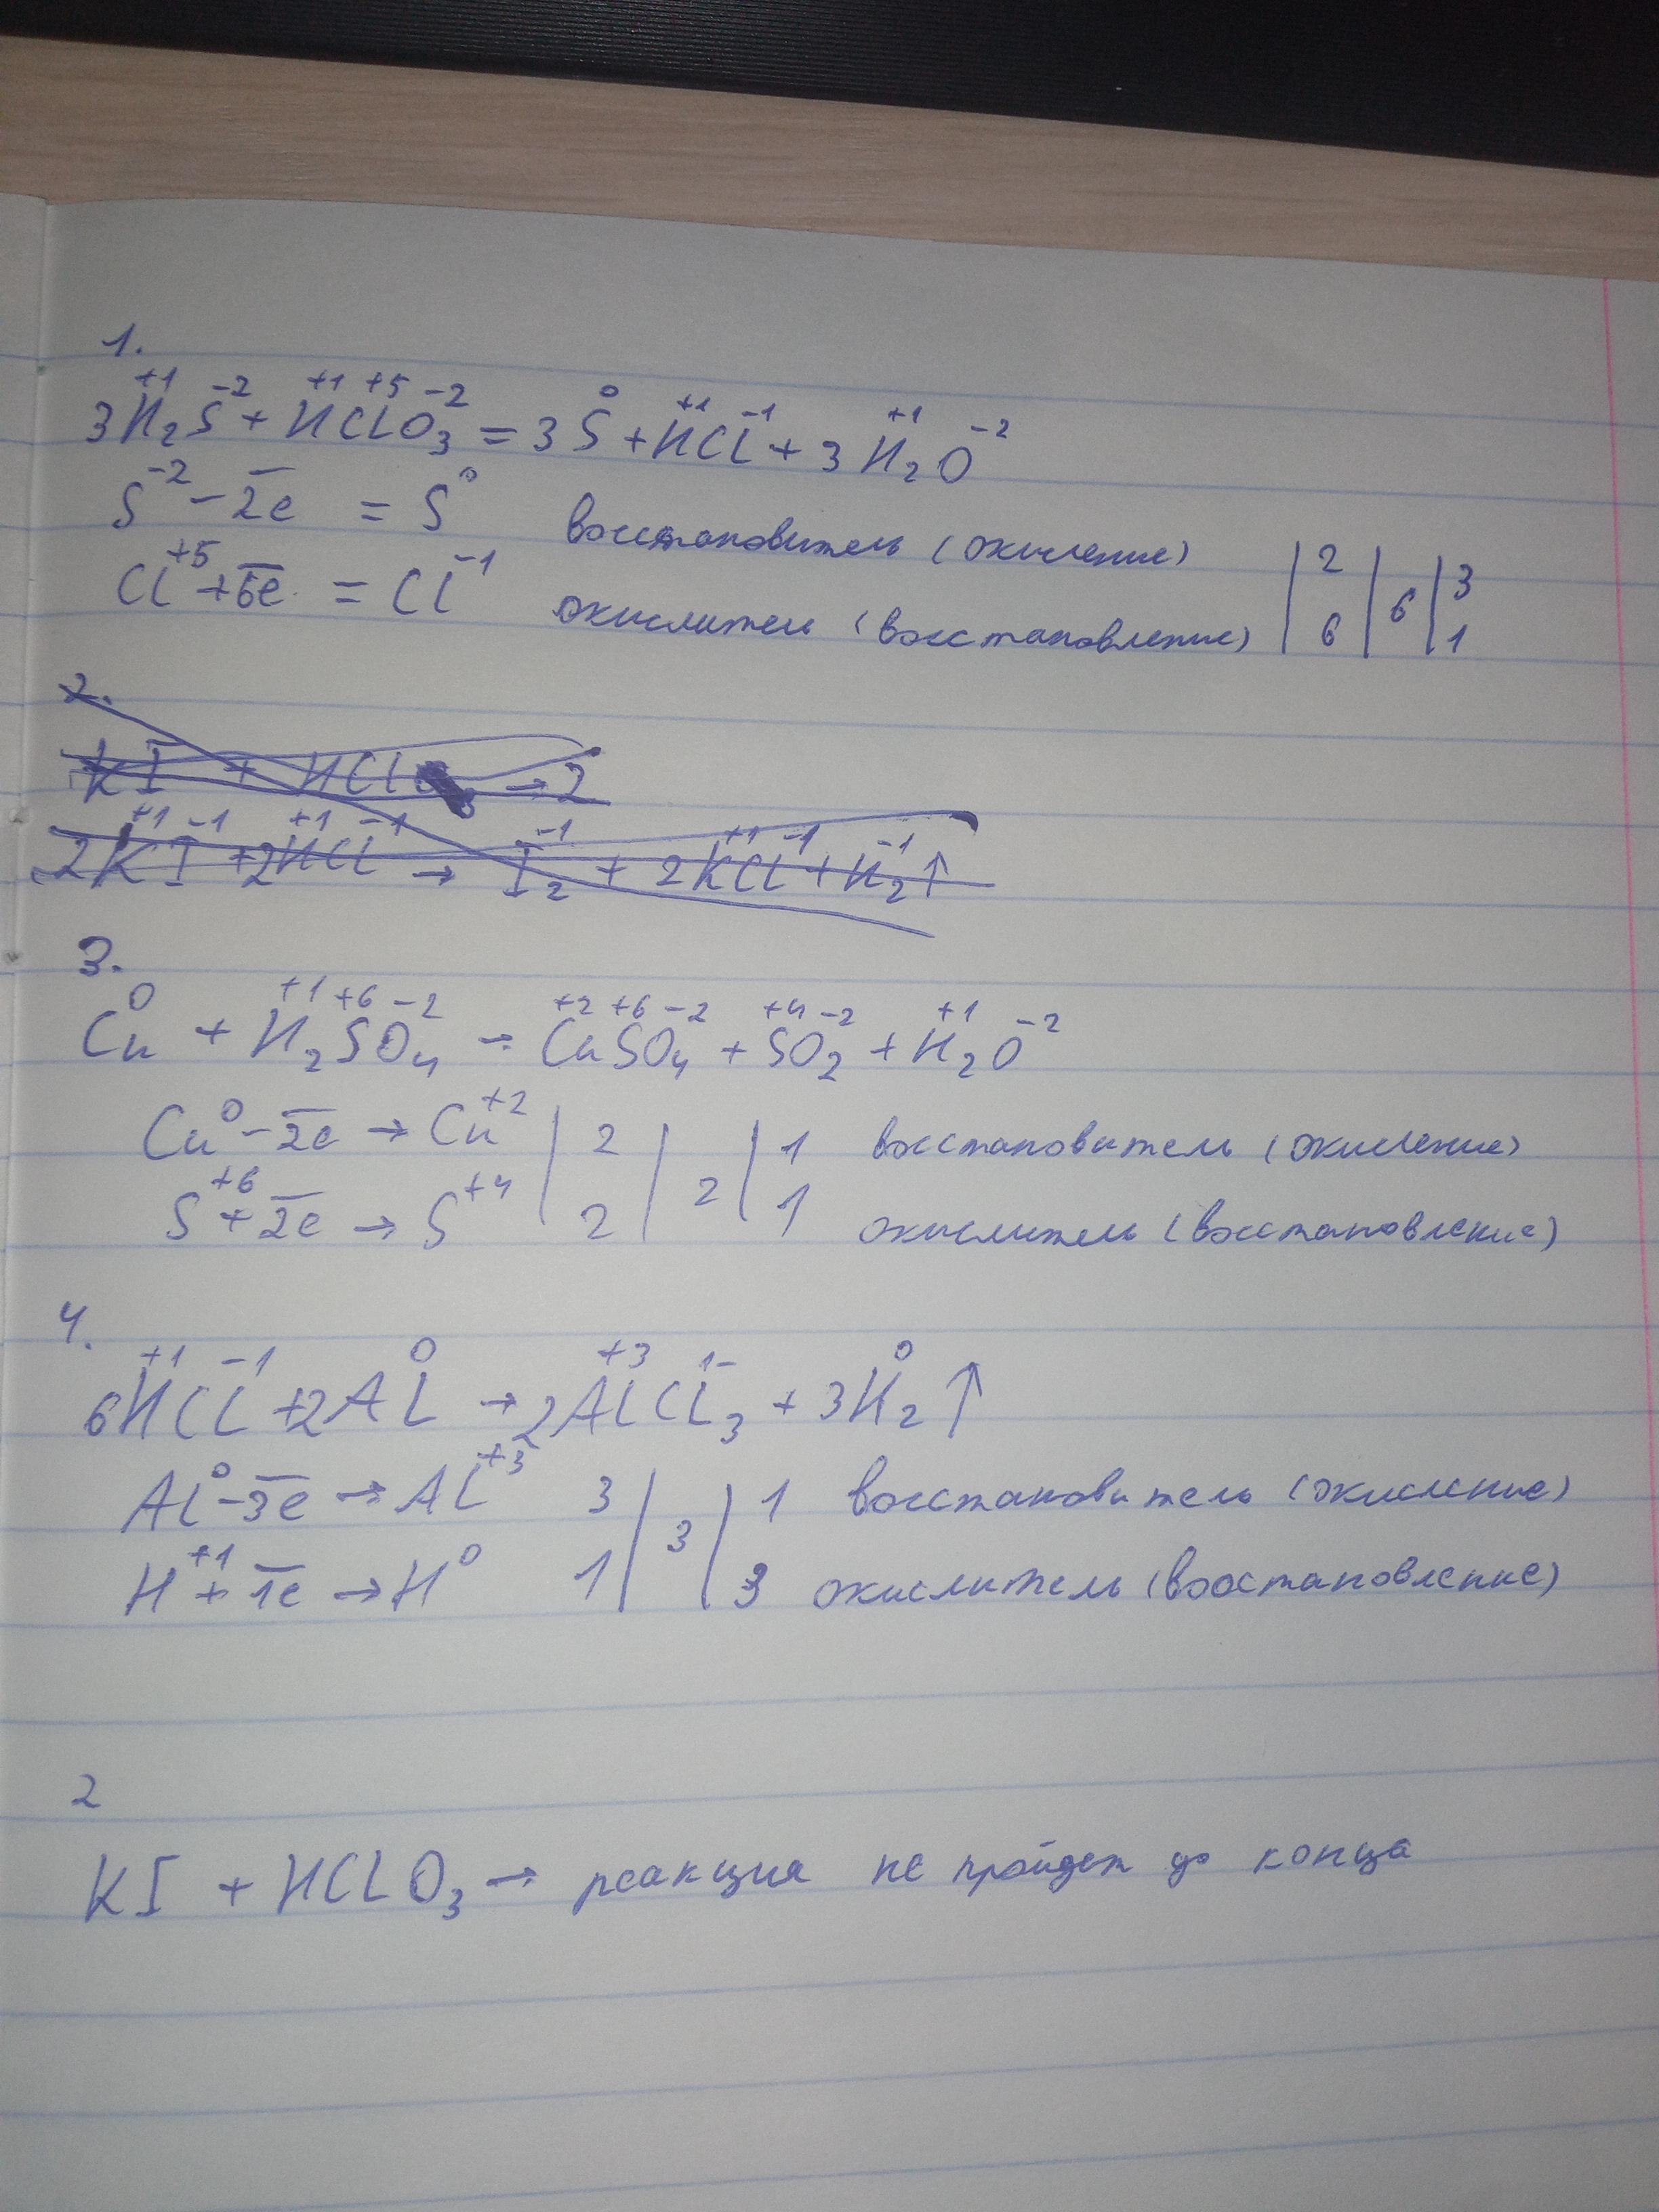 1.
+1 -2 +1 +5 -2 0 +1 -1 +1 -2
3H₂S + HClO₃ = 3S + HCl + 3H₂O
S⁻² - 2e̅ = S⁰ восстановитель (окисление) | 2 | 6 | 3
Cl⁺⁵ + 6e̅ = Cl⁻¹ окислитель (восстановление) | 6 | | 1
2.
KI + HClO → 2
+1 -1 +1 -1 -1 +1 -1 -1
2KI + 2HCl → I₂ + 2KCl + H₂↑
3.
0 +1 +6 -2 +2 +6 -2 +4 -2 +1 -2
Cu + H₂SO₄ - CuSO₄ + SO₂ + H₂O
Cu⁰ - 2e̅ → Cu⁺² | 2 | 2 | 1 восстановитель (окисление)
S⁺⁶ + 2e̅ → S⁺⁴ | 2 | | 1 окислитель (восстановление)
4.
+1 -1 0 +3 1- 0
6HCl + 2Al → 2AlCl₃ + 3H₂↑
Al⁰ - 3e̅ → Al⁺³ 3 | 3 | 1 восстановитель (окисление)
H⁺¹ + 1e̅ → H⁰ 1 | | 3 окислитель (восстановление)
2
KI + HClO₃ → реакция не пройдет до конца